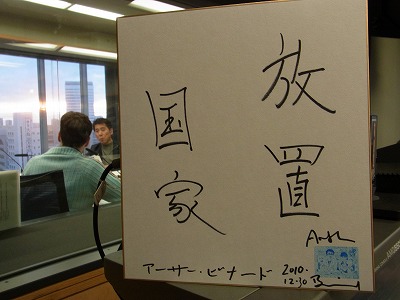 放置
国家
アーサー・ビナード
2010.
12.30